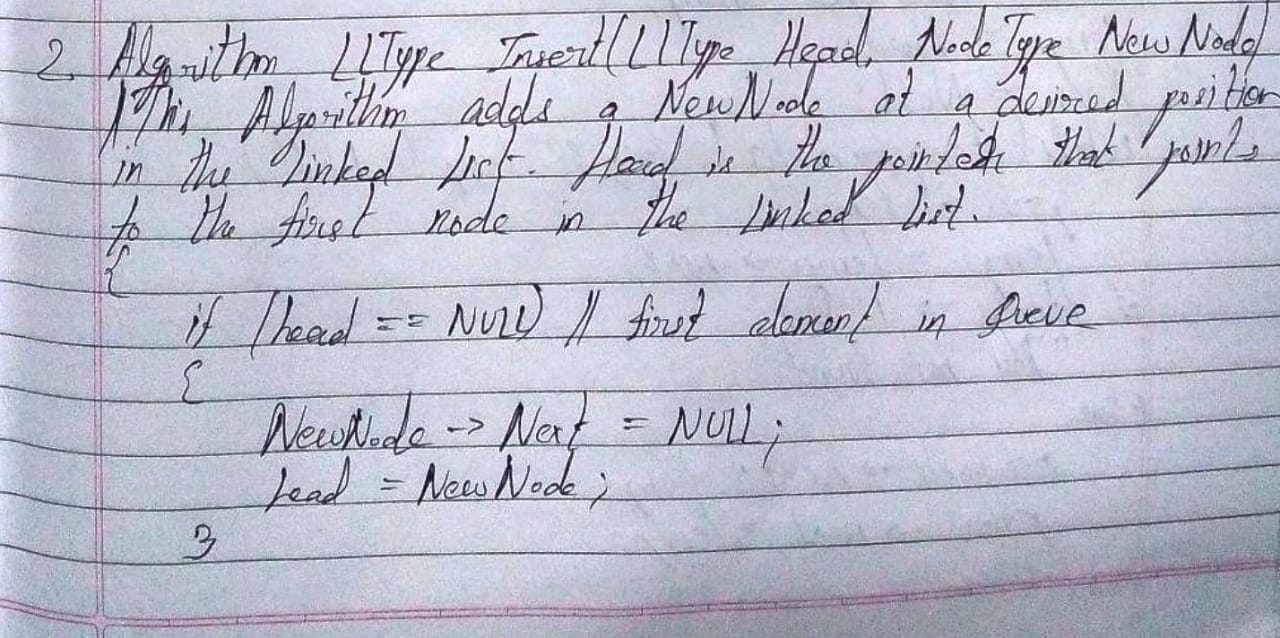 2 Algorithm LLType Insert(LLType Head, NodeType NewNode)
//This Algorithm adds a NewNode at a desired position
in the linked list. Head is the pointer that points
to the first node in the linked list.
{
if (head == NULL) // first element in Queue
{
NewNode -> Next = NULL;
head = NewNode;
}